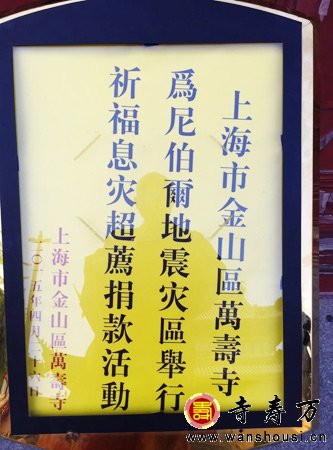 上海市金山區萬壽寺
爲尼伯爾地震灾區舉行
祈福息灾超薦捐款活動
上海市金山區萬壽寺
二〇一五年四月二十六日
壽
寺寿万
www.wanshousi.cn